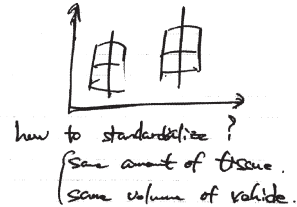 how to standardize?
same amount of tissue.
same volume of vehicle.